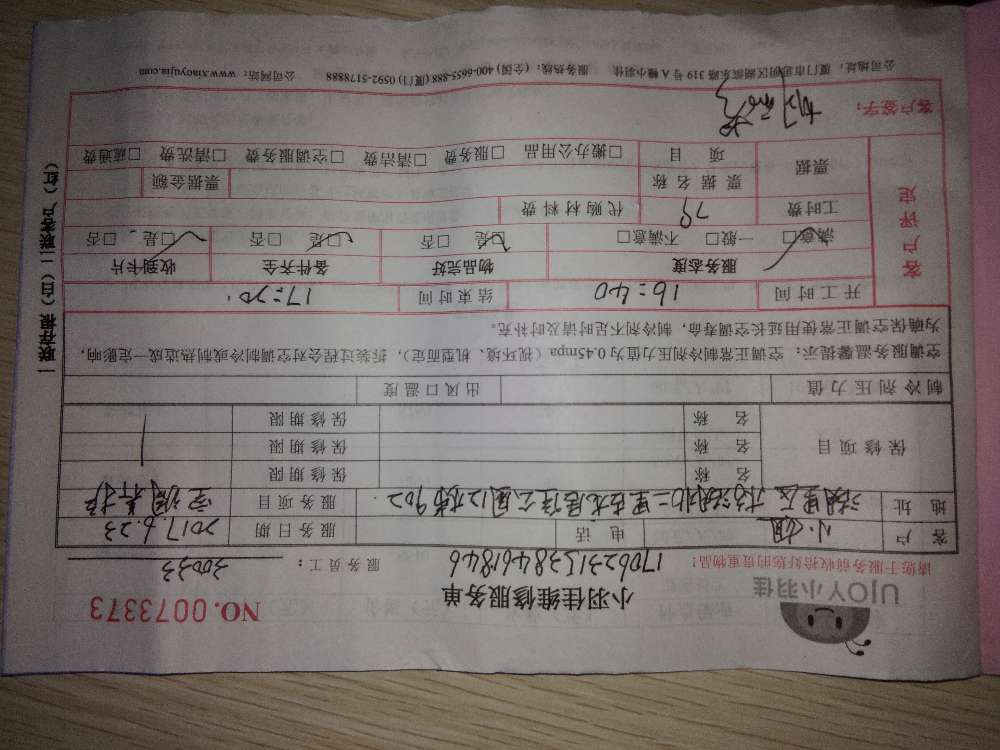 UJOY小羽佳
小羽佳维修服务单
NO.0073373
请您于服务前收拾好您的贵重物品!
17062315384461846
服务员工: 30033
客户 小姐 电话 服务日期 2017.6.23
地址 湖里区 二里 公寓12楼902 服务项目 空调养护
保修项目 名称 保修期限
名称 保修期限
名称 保修期限
制冷剂压力值 出风口温度
空调服务温馨提示:空调正常制冷剂压力值为0.45mpa(视环境、机型而定),拆装过程会对空调制冷或制热造成一定影响,
为确保空调正常使用延长空调寿命,制冷剂不足时请及时补充。
客户评定
开工时间 16:40 结束时间 17:20
服务态度 物品完好 备件齐全 收到卡片
满意□ 一般□ 不满意□ □是 □否 □是 □否 □是 □否
工时费 79 代购材料费
票据 票据名称 票据金额
项目 □搬办公用品 □服务费 □清洁费 □空调服务费 □清洗费 □疏通费
客户签字:
公司地址:厦门市思明区湖滨东路319号A幢小羽佳 服务热线:(全国)400-6655-888(厦门)0592-5178888 公司网站:www.xiaoyujia.com
一联存根(白)二联客户(红)